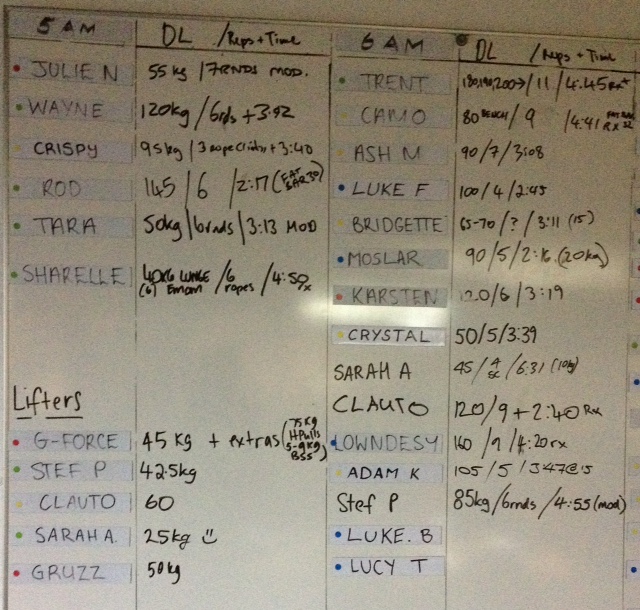 5 AM DL / Reps + Time
JULIE N 55 kg / 7 RNDS MOD.
WAYNE 120kg / 6rds + 3:02
CRISPY 95kg / 3 rope climbs + 3:40
ROD 145 / 6 / 2:17 (FAT BAR 30)
TARA 50kg / 6rnds / 3:13 MOD
SHARELLE 40KG LUNGE / 6 / 4:50
(6) Emom ropes
Lifters
G-FORCE 45 KG + extras (75KG
H Pulls
5-9kg
BSS)
STEF P 42.5kg
CLAUTO 60
SARAH A. 25kg
GRUZZ 50kg
6 AM DL / Reps + Time
TRENT 180,190,200 / 11 / 4:45 RX+
CAMO 80 BENCH / 9 / 4:41
ASH M 90 / 7 / 3:08
LUKE F 100 / 4 / 2:45
BRIDGETTE 65-70 / ? / 3:11 (15)
MOSLAR 90 / 5 / 2:16 (20kg)
KARSTEN 120/6 / 3:19
CRYSTAL 50/5/3:39
SARAH A 45 / 4 SC / 6:31 (10kg)
CLAUTO 120 / 9 + 2:40 Rx
LOWNDESY 160 / 9 / 4:20 rx
ADAM K 105 / 5 / 3:47@15
Stef P 85kg / 6rnds / 4:55 (mod)
LUKE. B
LUCY T